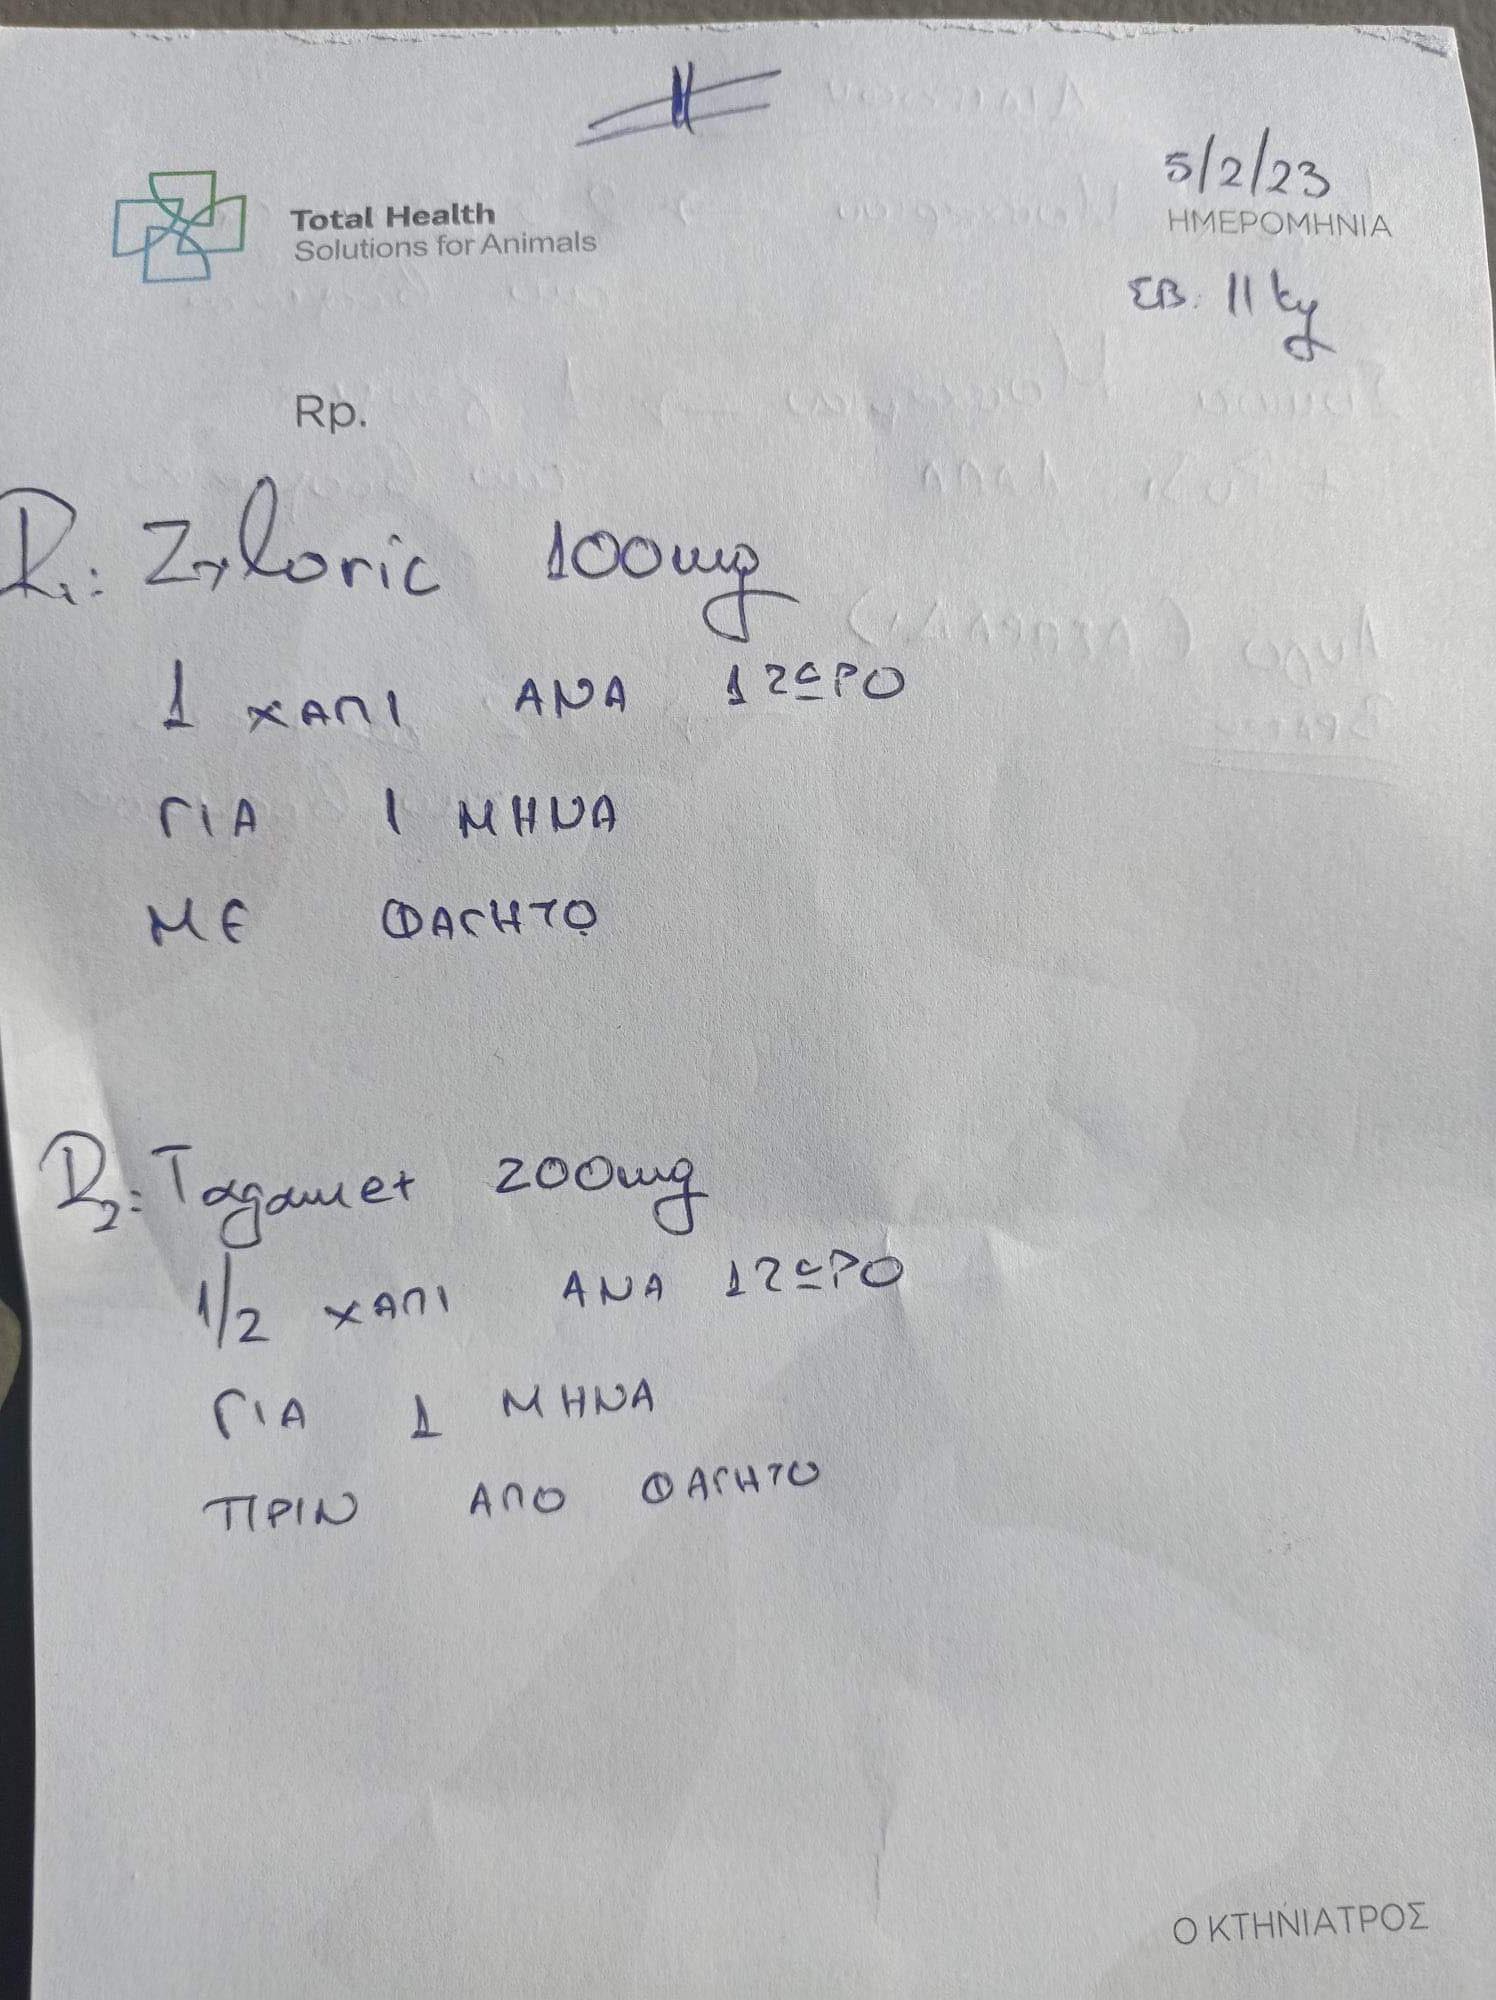 5/2/23
Total Health
Solutions for Animals
ΗΜΕΡΟΜΗΝΙΑ
ΣΒ: 11 kg
Rp.
R1: Zyloric 100mg
1 ΧΑΠΙ ΑΝΑ 12ωΡΟ
ΓΙΑ 1 ΜΗΝΑ
ΜΕ ΦΑΓΗΤΟ
R2: Tagamet 200mg
1/2 ΧΑΠΙ ΑΝΑ 12ωΡΟ
ΓΙΑ 1 ΜΗΝΑ
ΠΡΙΝ ΑΠΟ ΦΑΓΗΤΟ
Ο ΚΤΗΝΙΑΤΡΟΣ